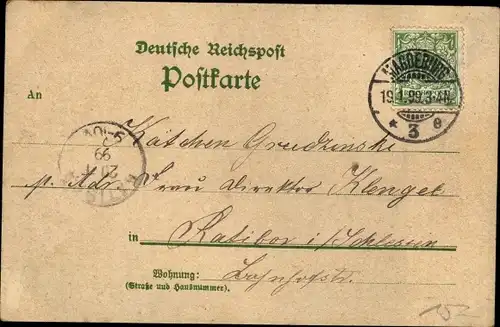 Deutsche Reichspost
Postkarte
MAGDEBURG
19.1.99.3-4N.
* 3 e
An
Kätchen Grudzinski
p. Adr. Frau Direktor Klengel
in Ratibor i/Schlesien
Wohnung: Bahnhofstr.
(Straße und Hausnummer).
152